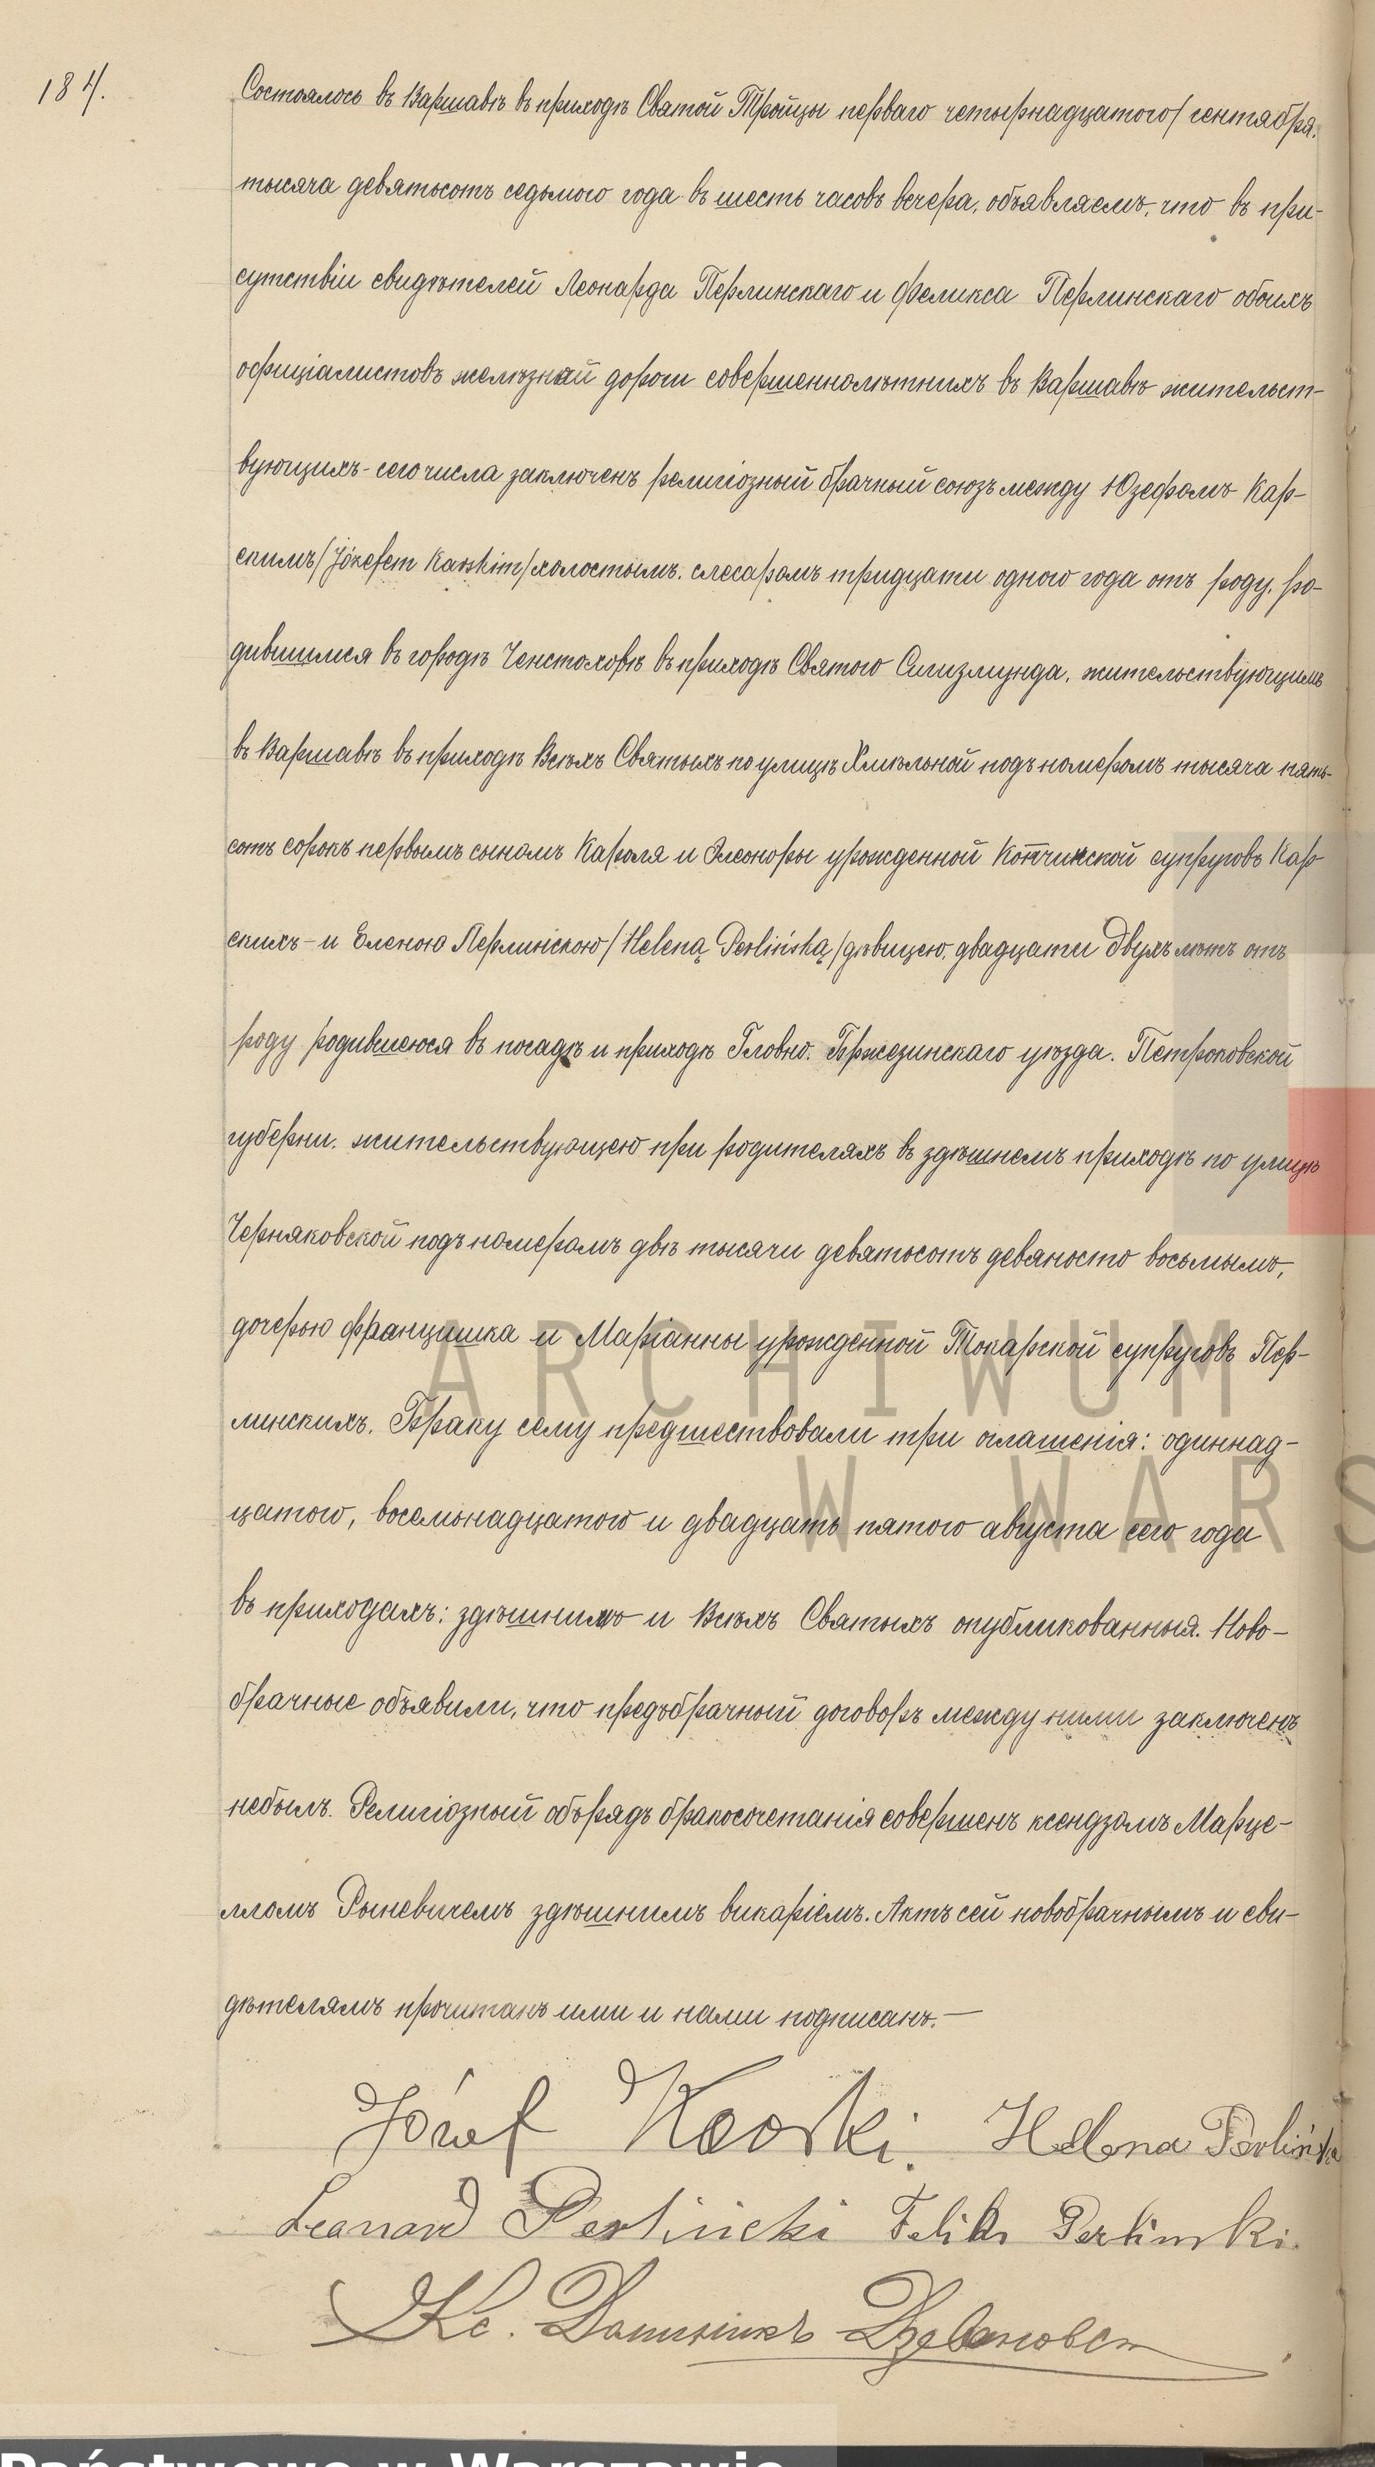 184.
Состоялось въ Варшавѣ въ приходѣ Святой Тройцы перваго четырнадцатого/ сентября.
тысяча девятьсотъ седьмого года въ шесть часовъ вечера, объявляемъ, что въ при-
сутствіи свидѣтелей Леонарда Перлинскаго и Феликса Перлинскаго обоихъ
офиціалистовъ желѣзной дороги совершеннолѣтнихъ въ Варшавѣ жительст-
вующихъ - сего числа заключенъ религіозный брачный союзъ между Юзефомъ Кар-
скимъ /Józefem Karskim/ холостымъ. слесаромъ тридцати одного года отъ роду, ро-
дившимся въ городѣ Ченстоховѣ въ приходѣ Святого Сигизмунда, жительствующимъ
въ Варшавѣ въ приходѣ Всѣхъ Святыхъ по улицѣ Хмѣльной подъ номеромъ тысяча пять-
сотъ сорокъ первымъ сыномъ Кароля и Элеоноры урожденной Копчинской супруговъ Кар
скихъ - и Еленою Перлинскою /Heleną Perlińską/ дѣвицею, двадцати двухъ лѣтъ отъ
роду родившеюся въ посадѣ и приходѣ Гловно. Бржезинскаго уѣзда. Петроковской
губерни. жительствующею при родителяхъ въ здѣшнемъ приходѣ по улицѣ
Черняковской подъ номеромъ двѣ тысячи девятьсотъ девяносто восьмымъ,
дочерью Францишка и Маріанны урожденной Токарской супруговъ Пер-
линскихъ. Браку сему предшествовали три оглашенія: одиннад-
цатого, восемьнадцатого и двадцать пятого августа сего года
въ приходахъ: здѣшнимъ и Всѣхъ Святыхъ опубликованныя. Ново-
брачные объявили, что предъбрачный договоръ между ними заключенъ
небылъ. Религіозный обърядъ бракосочетанія совершенъ ксендзомъ Марце-
лломъ Рыневичемъ здѣшнимъ викаріемъ. Актъ сей новобрачнымъ и сви-
дѣтелямъ прочитанъ ими и нами подписанъ. —
Józef Karski. Helena Perlińska
Leonard Perlinski Feliks Perlinski.
Кс. Доминикъ
ARCHIWUM
W WARS
Państwowe w Warszawie